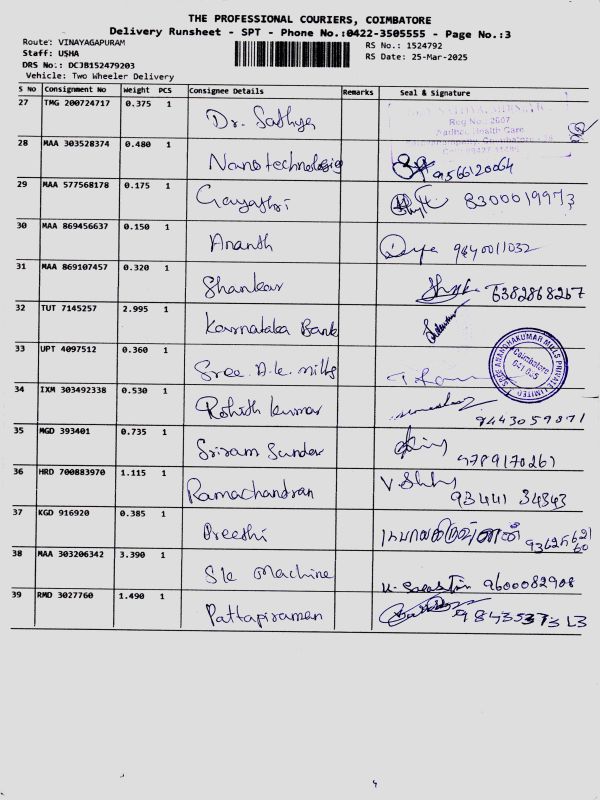 THE PROFESSIONAL COURIERS, COIMBATORE
Delivery Runsheet - SPT - Phone No.:0422-3505555 - Page No.:3
Route: VINAYAGAPURAM
Staff: USHA
DRS No.: DCJB152479203
Vehicle: Two Wheeler Delivery
RS No.: 1524792
RS Date: 25-Mar-2025
S No Consignment No Weight PCS Consignee Details Remarks Seal & Signature
27 TMG 200724717 0.375 1 Dr. Sathya
Reg No: 2607
Aadhav Health Care
28 MAA 303528374 0.480 1 Nanotechnologies 9566120064
29 MAA 577568178 0.175 1 Gayathri 8300019973
30 MAA 869456637 0.150 1 Ananth 9440011032
31 MAA 869107457 0.320 1 Shankar 6382868267
32 TUT 7145257 2.995 1 Karnataka Bank
33 UPT 4097512 0.360 1 Sree A.K. mills
SREE ANANDHAKUMAR MILLS PRIVATE LIMITED
Coimbatore
641 035
34 IXM 303492338 0.530 1 Rohith Kumar 9443059871
35 MGD 393401 0.735 1 Sriram Sunder 9789170261
36 HRD 700883970 1.115 1 Ramachandran 93441 34343
37 KGD 916920 0.385 1 Preethi
38 MAA 303206342 3.390 1 Machine 9600082908
39 RMD 3027760 1.490 1 Pattapiraman 9843537313